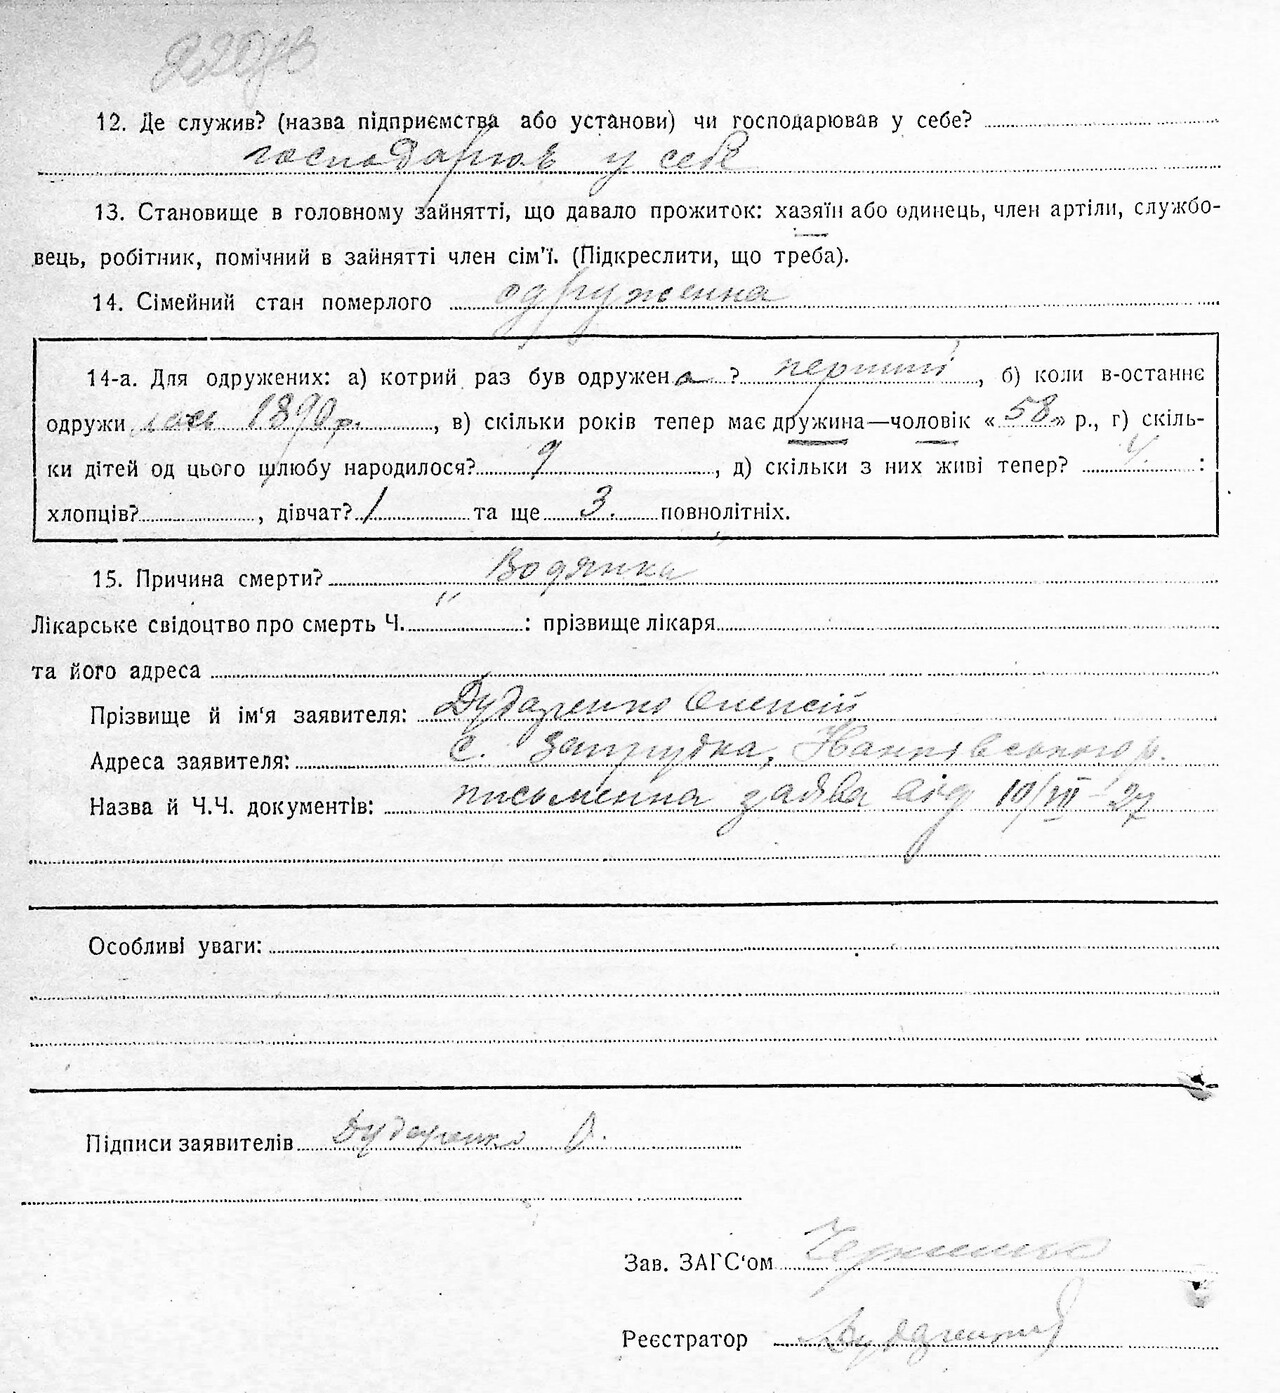 12. Де служив? (назва підприємства або установи) чи господарював у себе?
господарюв у себе
13. Становище в головному зайнятті, що давало прожиток: хазяїн або одинець, член артіли, службо-
вець, робітник, помічний в зайнятті член сім'ї. (Підкреслити, що треба).
14. Сімейний стан померлого одруженна
14-а. Для одружених: а) котрий раз був одружена? перший, б) коли в-останнє
одружилась 1890 р., в) скільки років тепер має дружина—чоловік «58» р., г) скіль-
ки дітей од цього шлюбу народилося? 9, д) скільки з них живі тепер? 4. :
хлопців?, дівчат? 1 та ще 3. повнолітніх.
15. Причина смерти? Водянка
Лікарське свідоцтво про смерть Ч. " : прізвище лікаря
та його адреса
Прізвище й ім'я заявителя: Дударенко Олексій
Адреса заявителя: с. Запрудка, р.
Назва й Ч.Ч. документів: письменна заява від 10/VII-27
Особливі уваги:
Підписи заявителів Дударенко О.
Зав. ЗАГС'ом
Реєстратор